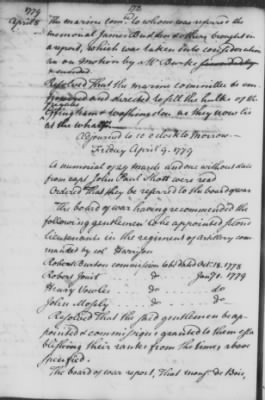 1779
178
April 8
The marine comee to whom was referred the
memorial James Buchan & others brought in
a report, which was taken into consideration
on on motion by a Mr Burke
amended
Resolved That the marine committee be em
powered and directed to sell the hulks of the
frigates
Effingham & Washington as they now lie
at the wharf
Adjourned to 10 o Clock to Morrow
Friday April 9. 1779
A memorial of 29 March and one without date
from capt John Paul Schott were read
Ordered That they be referred to the board of war
The board of war having recommended the
following gentlemen to be appointed second
lieutenants in the regiment of artillery com
manded by col Harrison
Robert Burton commission to be dated Oct. 18. 1778
Robert Jouit do Jany 1. 1779
Henry Vowles do do
John Mosely do do
Resolved That the said gentlemen be ap
pointed & commissions granted to them esta
blishing their ranks from the times above
specified.
The board of war report, That monsr de Bois,